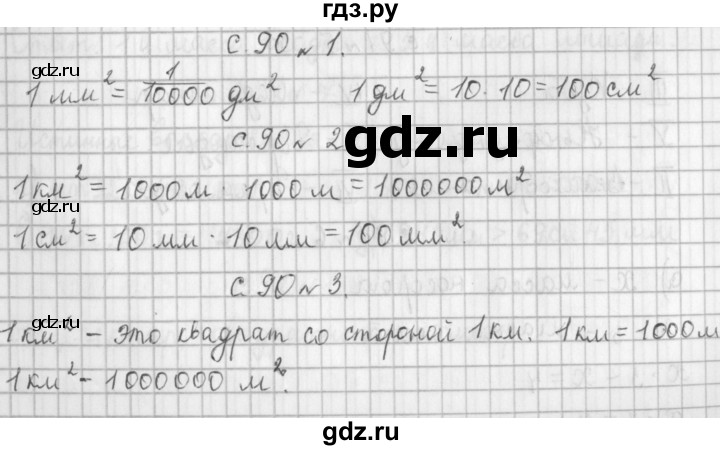 гдз.ру
с. 90 № 1.
gdz.ru gdz.ru
1 мм² = 1/10000 дм² 1 дм² = 10 · 10 = 100 см²
с. 90 № 2
gdz.ru
1 км² = 1000 м · 1000 м = 1000000 м²
gdz.ru gdz.ru
1 см² = 10 мм · 10 мм = 100 мм²
с. 90 № 3.
gdz.ru gdz.ru
1 км² – это квадрат со стороной 1 км. 1 км = 1000 м
1 км² – 1000000 м².
gdz.ru